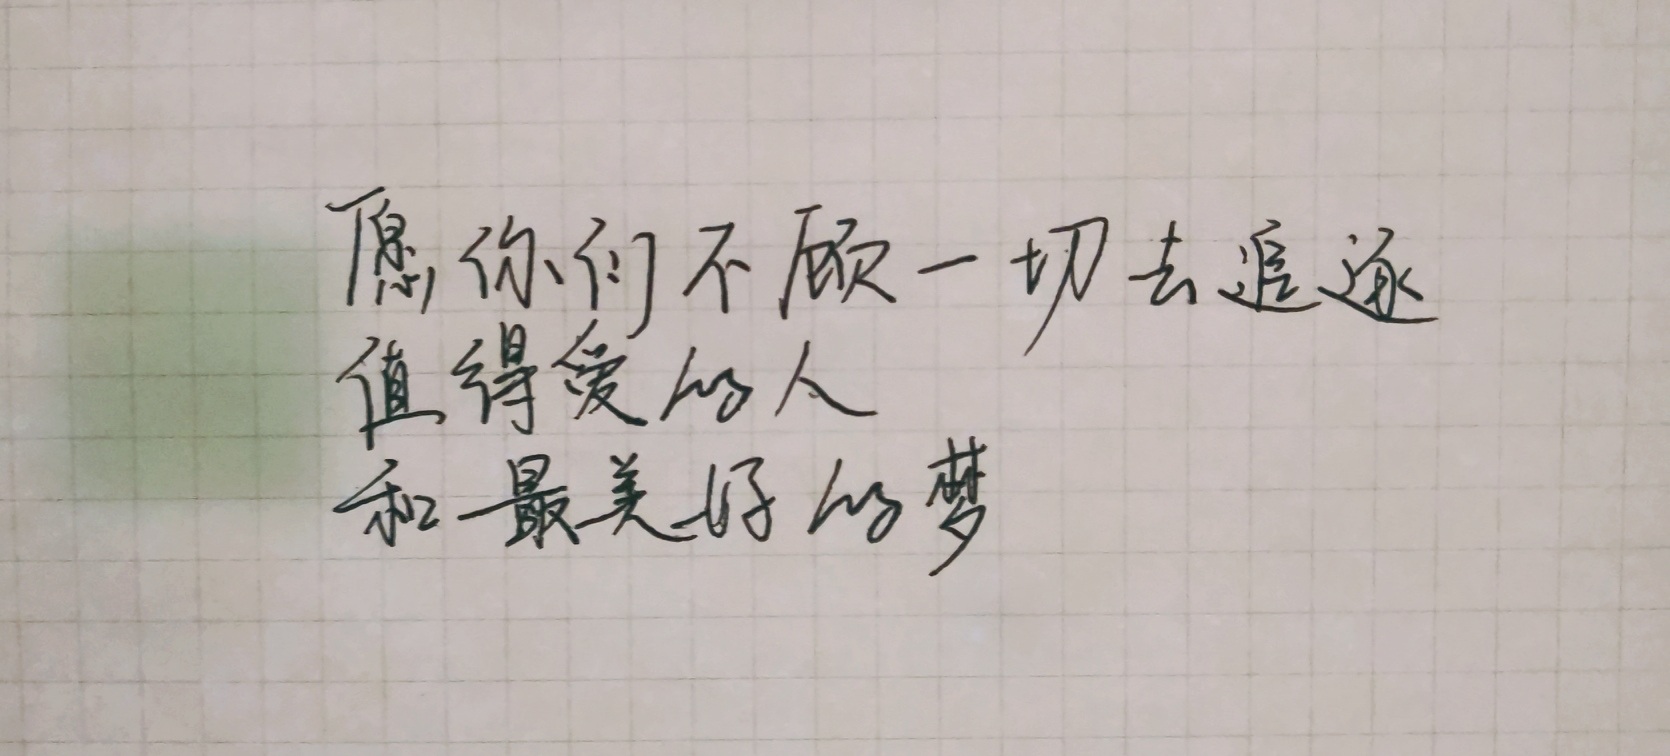 愿你们不顾一切去追逐
值得爱的人
和最美好的梦